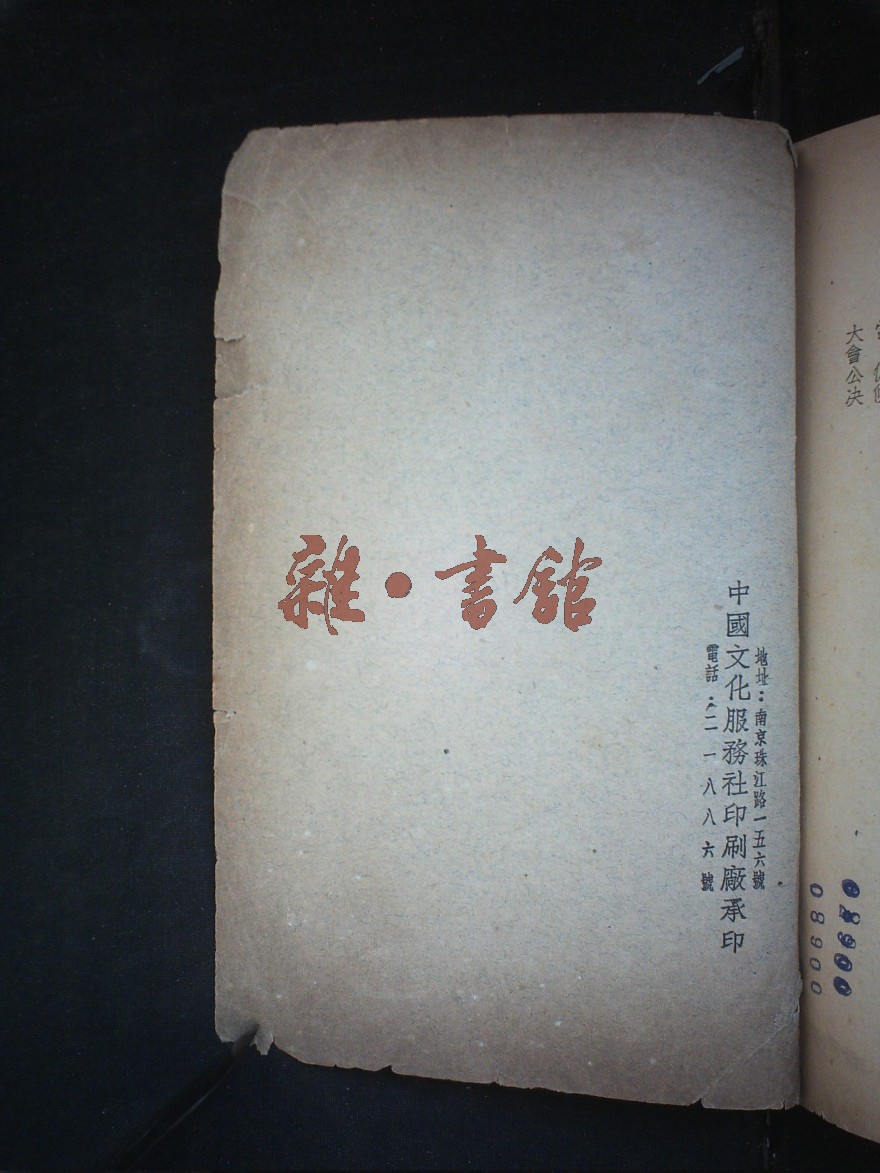 雜•書館
地址：南京珠江路一五六號
中國文化服務社印刷廠承印
電話：二一八八六號
大會公決
00680